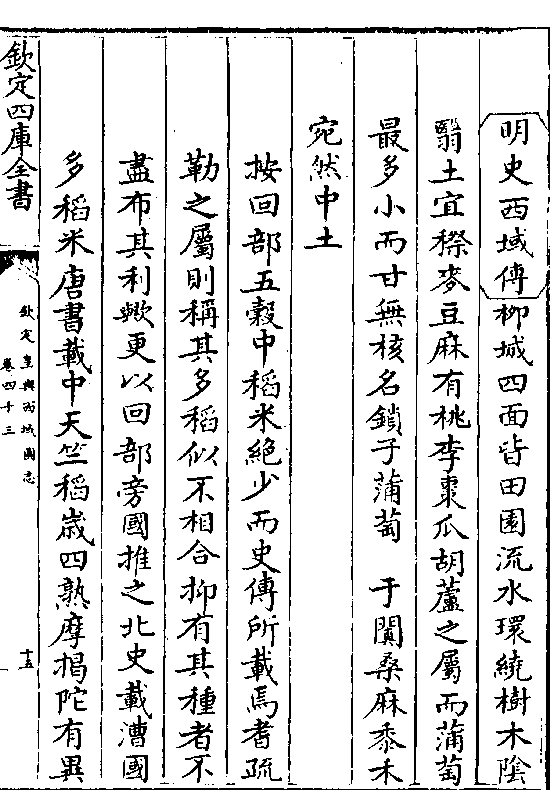 明史西域傳柳城四面皆田園流水環繞樹木陰
翳土宜穄麥豆麻有桃李棗瓜胡蘆之屬而蒲萄
最多小而甘無核名鎖子蒲萄　于闐桑麻黍禾
宛然中土
按回部五穀中稻米絶少而史傳所載焉耆疏
勒之屬則稱其多稻似不相合抑有其種者不
盡布其利歟更以回部旁國推之北史載漕國
多稻米唐書載中天竺稻歲四熟摩揭陀有異
欽定四庫全書
欽定皇輿西域圖志
卷四十三
十五